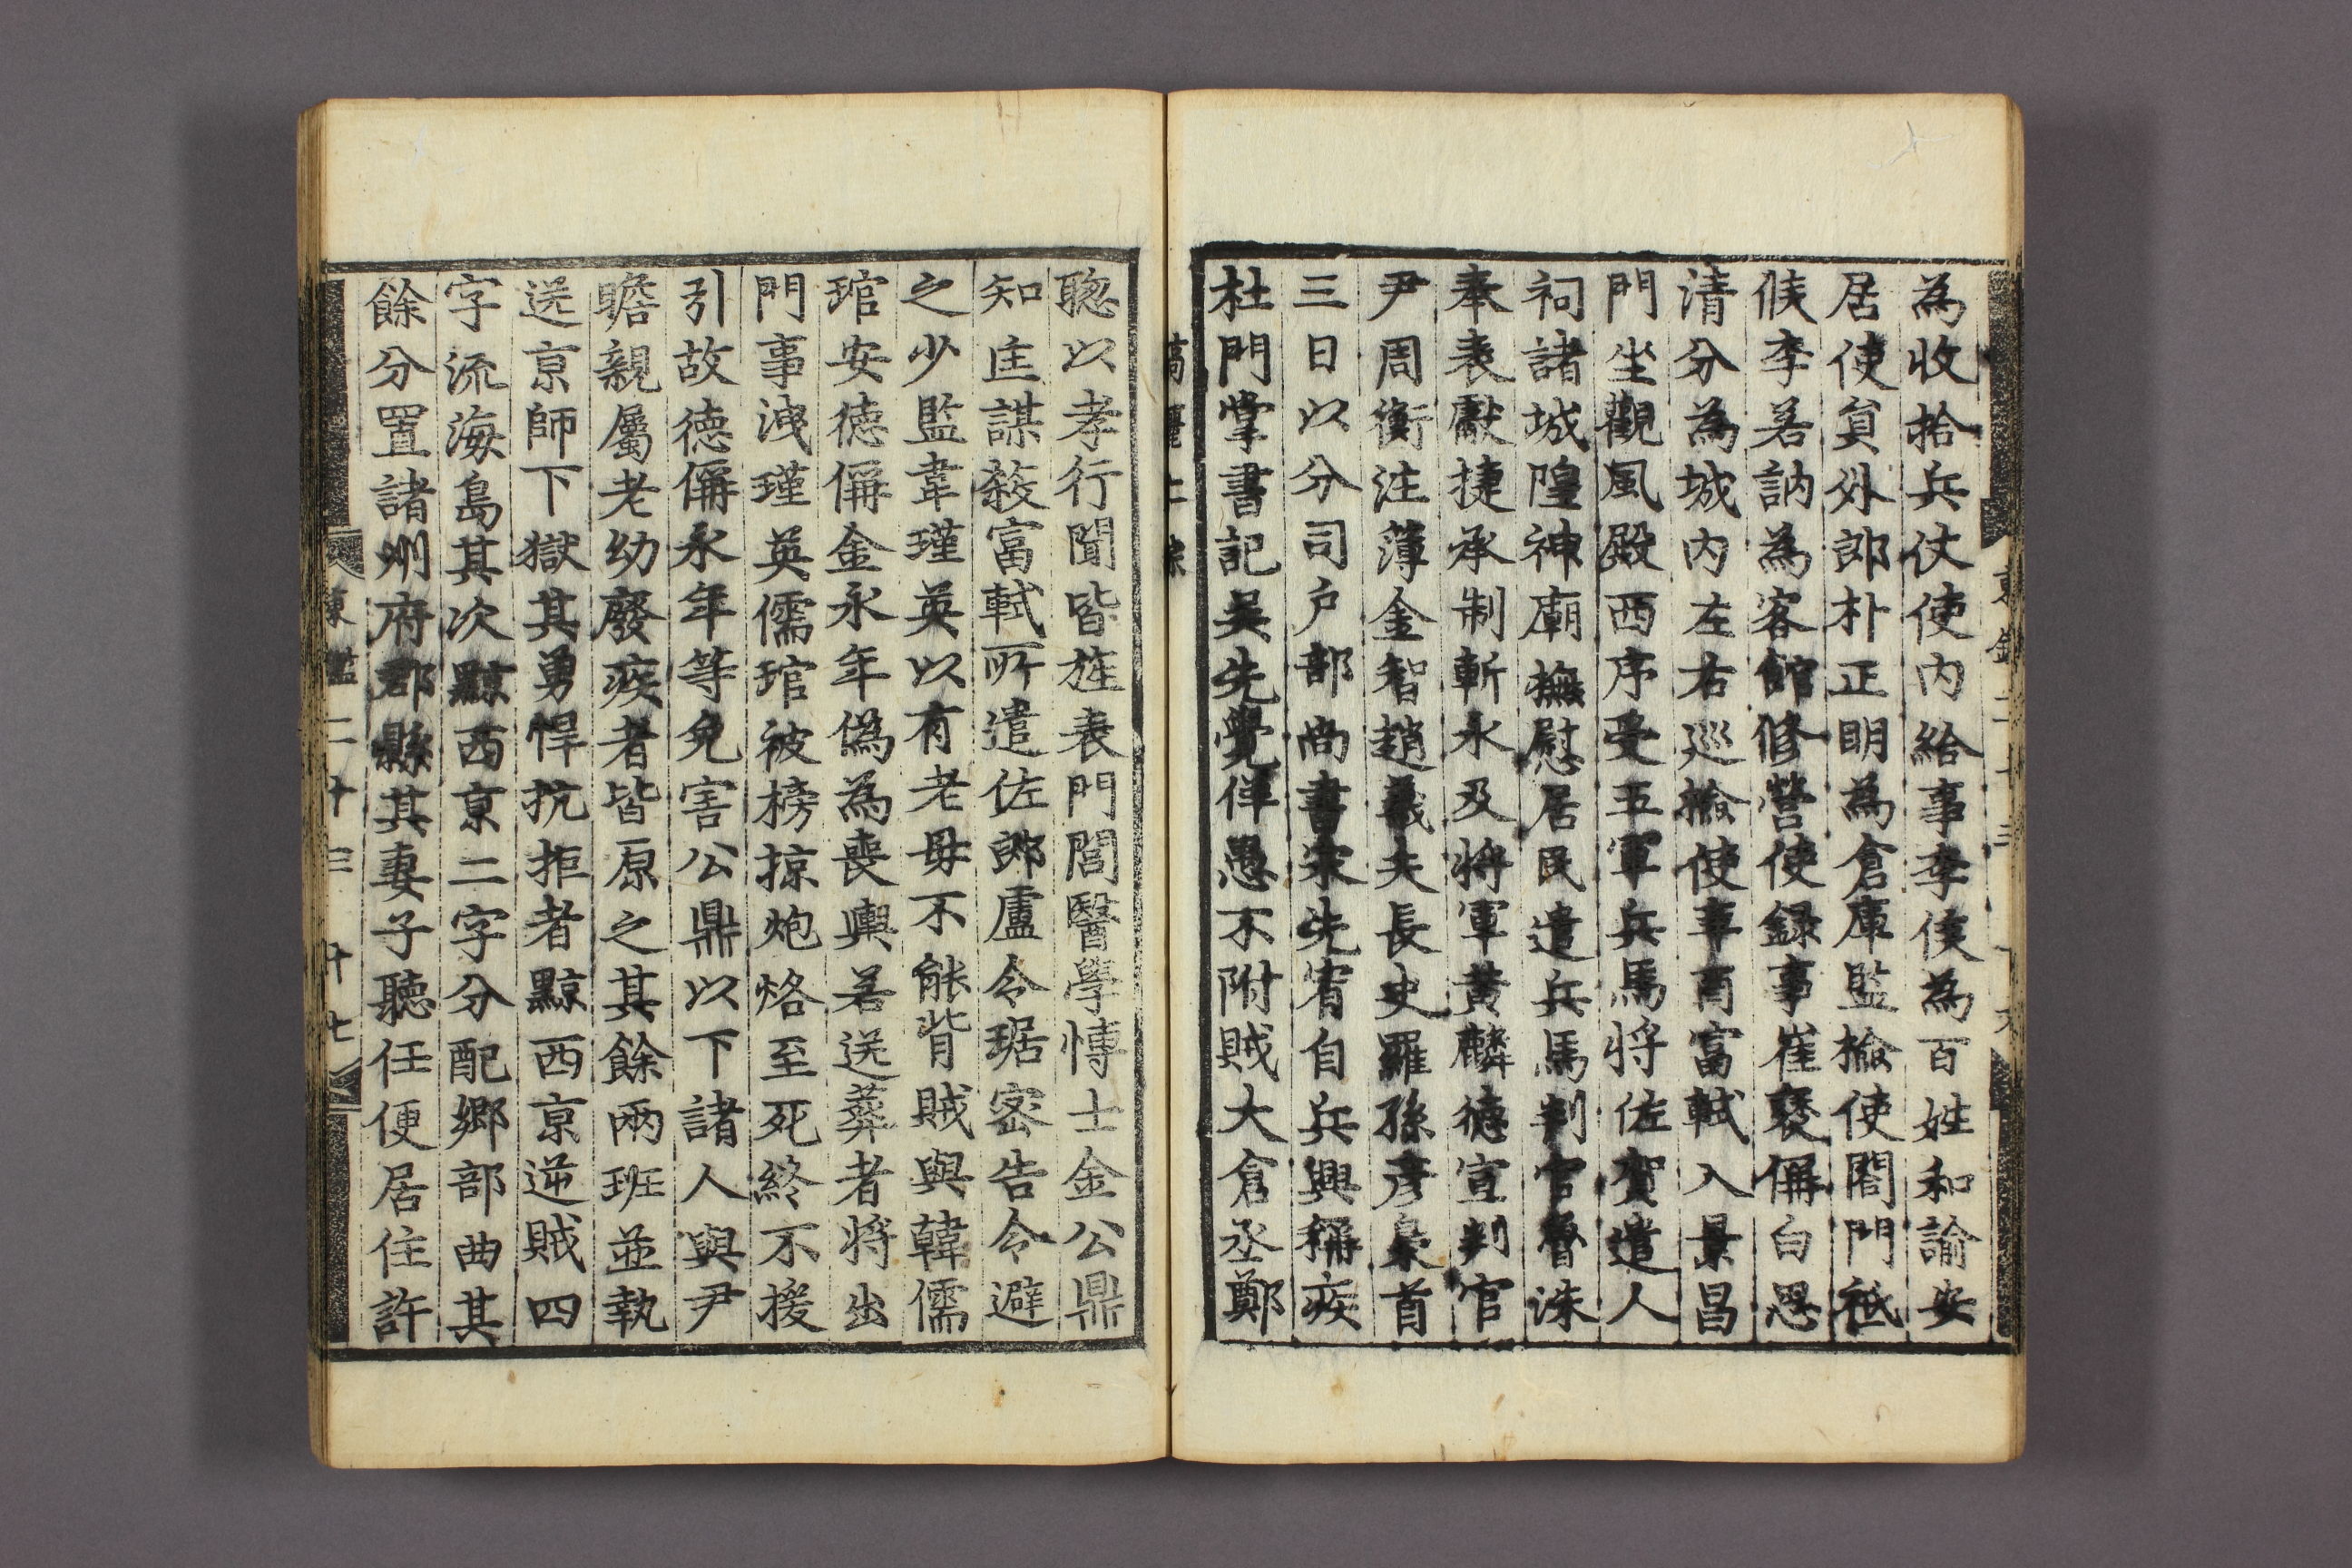 為收拾兵仗使內給事李侯為百姓和諭安
居使貟外郎朴正明為倉庫監撿使閤門祗
候李若訥為客館修營使録事崔褒偁白思
清分為城內左右巡撿使事甫富軾入景昌
門坐觀風殿西序受五軍兵馬將佐賀遣人
祠諸城隍神廟撫慰居民遣兵馬判官魯洙
奉表獻捷承制斬永及將軍黃麟德宣判官
尹周衡注薄金智趙義夫長史羅孫彥梟首
三日以分司戶部尚書宋先宥自兵興稱疾
杜門掌書記吳先覺佯愚不附賊大倉丞鄭
聦以孝行聞皆旌表門閭醫學博士金公鼎
知匡謀殺富軾所遣佐郎盧令琚密告令避
之少監韋瑾英以有老母不能背賊與韓儒
琯安德偁金永年偽為喪輿若送葬者將出
門事洩瑾英儒琯被榜掠炮烙至死終不援
引故德偁永年等免害公鼎以下諸人與尹
瞻親屬老幼廢疾者皆原之其餘兩班並執
送京師下獄其勇悍抗拒者黥西京逆賊四
字流海島其次黥西京二字分配鄉部曲其
餘分置諸州府郡縣其妻子聽任便居住許
東鑑二十三 十七